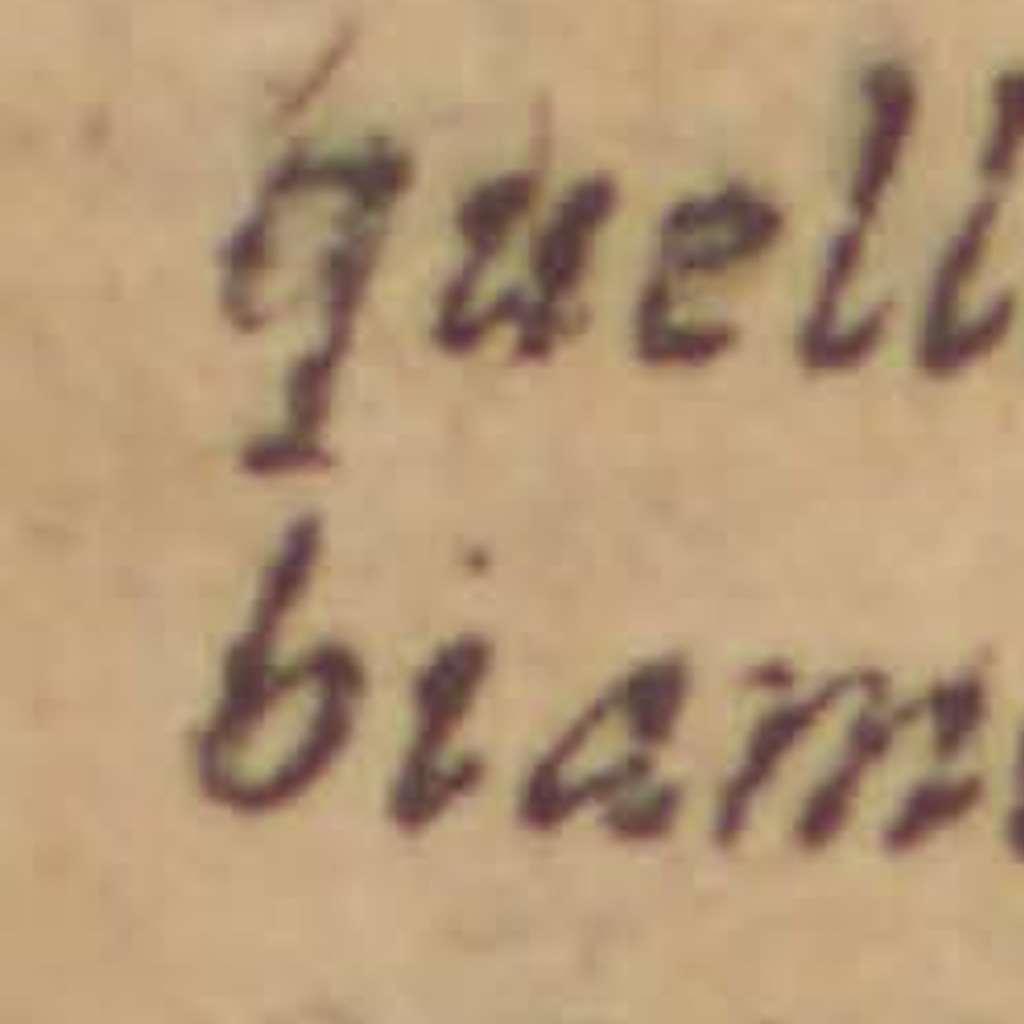 quell
biam